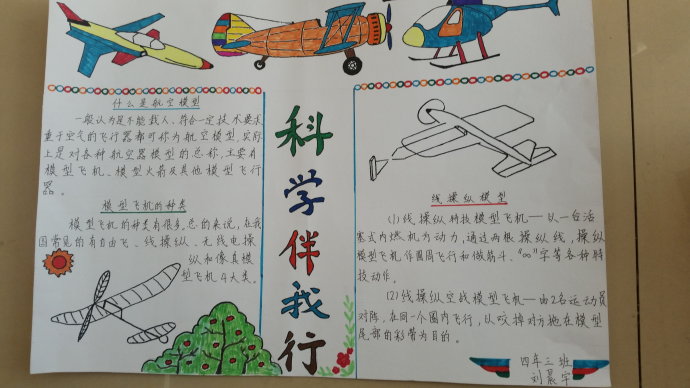 什么是航空模型
一般认为是不能载人,符合一定技术要求
重于空气的飞行器都可称为航空模型,实际
上是对各种航空器模型的总称,主要有
模型飞机、模型火箭及其他模型飞行
器。
模型飞机的种类
模型飞机的种类有很多,总的来说,在我
国常见的有自由飞、线操纵、无线电操
纵和像真模
型飞机4大类。
科学伴我行
线操纵模型
(1)线操纵特技模型飞机——以一台活
塞式内燃机为动力,通过两根操纵线,操纵
模型飞机作圆周飞行和做筋斗、“∞”字等各种特
技动作。
(2)线操纵空战模型飞机——由2名运动员
对阵,在同一个圈内飞行,以咬掉对方拖在模型
尾部的彩带为目的。
四年三班
刘晨宇